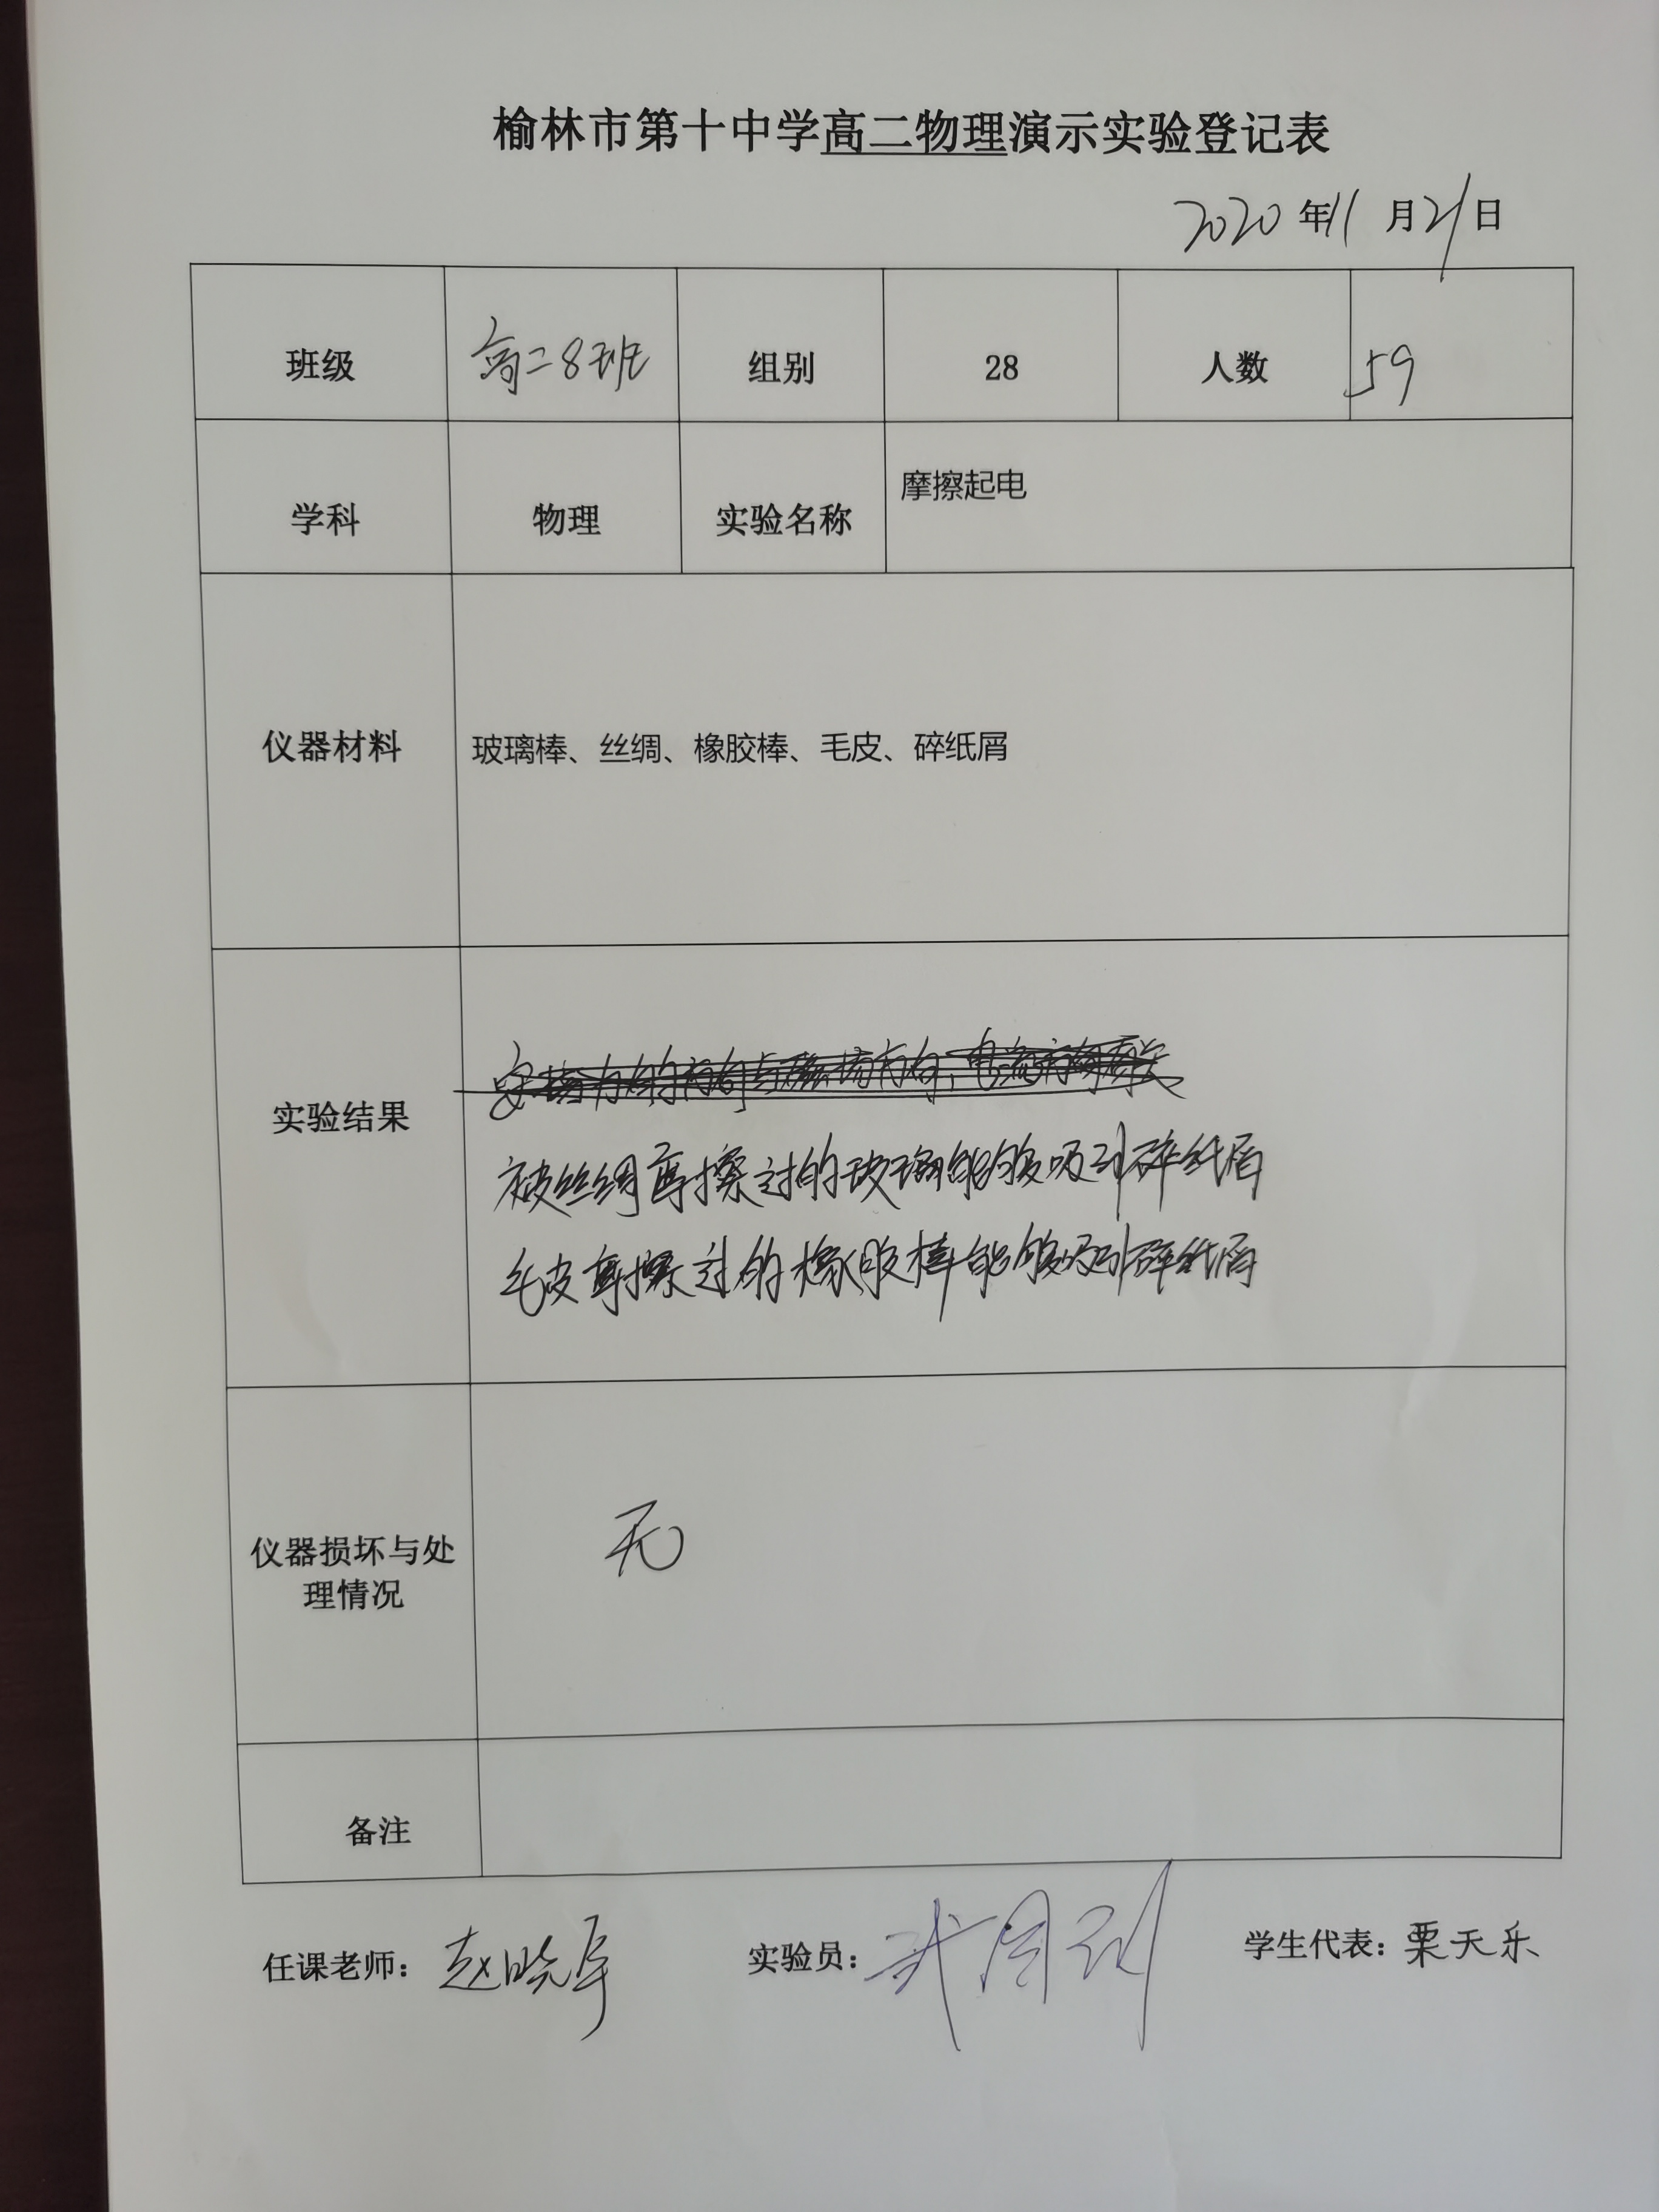 榆林市第十中学高二物理演示实验登记表
2020年11月21日
班级 高二8班 组别 28 人数 59
学科 物理 实验名称 摩擦起电
仪器材料 玻璃棒、丝绸、橡胶棒、毛皮、碎纸屑
实验结果
被丝绸摩擦过的玻璃能够吸引碎纸屑
毛皮摩擦过的橡胶棒能够吸引碎纸屑
仪器损坏与处
理情况
无
备注
任课老师：赵晓军 实验员： 学生代表：栗天乐